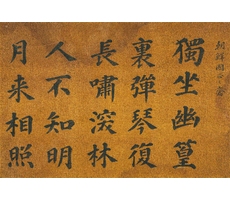 朝鮮國
獨坐幽篁
裏彈琴復
長嘯深林
人不知明
月来相照